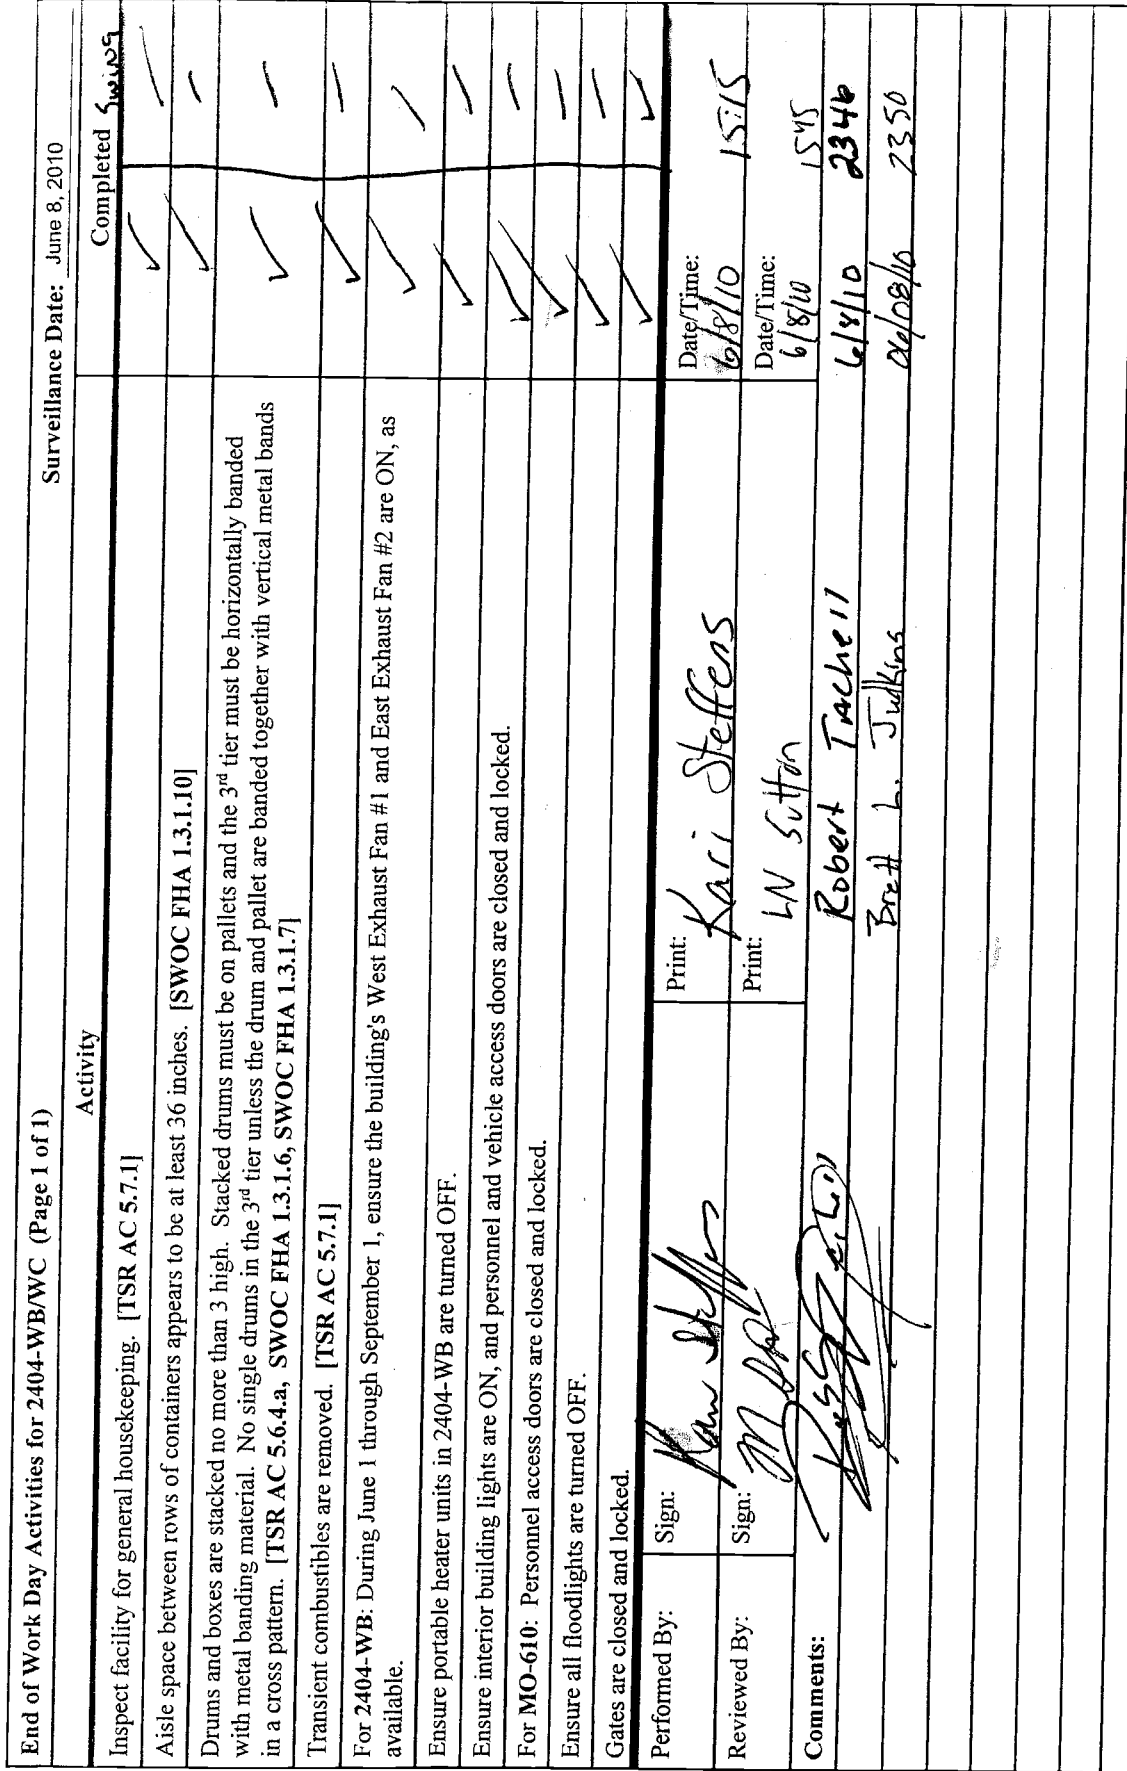 End of Work Day Activities for 2404-WB/WC (Page 1 of 1)
Surveillance Date: June 8, 2010
Activity
Completed Swing
Inspect facility for general housekeeping. [TSR AC 5.7.1]
Aisle space between rows of containers appears to be at least 36 inches. [SWOC FHA 1.3.1.10]
Drums and boxes are stacked no more than 3 high. Stacked drums must be on pallets and the 3rd tier must be horizontally banded
with metal banding material. No single drums in the 3rd tier unless the drum and pallet are banded together with vertical metal bands
in a cross pattern. [TSR AC 5.6.4.a, SWOC FHA 1.3.1.6, SWOC FHA 1.3.1.7]
Transient combustibles are removed. [TSR AC 5.7.1]
For 2404-WB: During June 1 through September 1, ensure the building's West Exhaust Fan #1 and East Exhaust Fan #2 are ON, as
available.
Ensure portable heater units in 2404-WB are turned OFF.
Ensure interior building lights are ON, and personnel and vehicle access doors are closed and locked.
For MO-610: Personnel access doors are closed and locked.
Ensure all floodlights are turned OFF.
Gates are closed and locked.
Performed By:
Sign:
Print: Kari Steffens
Date/Time:
6/8/10 15:15
Reviewed By:
Sign:
Print: LN Sutton
Date/Time:
6/8/10 1545
Comments:
Robert Tachell 6/8/10 2346
Brett L. Judkins 06/08/10 2350